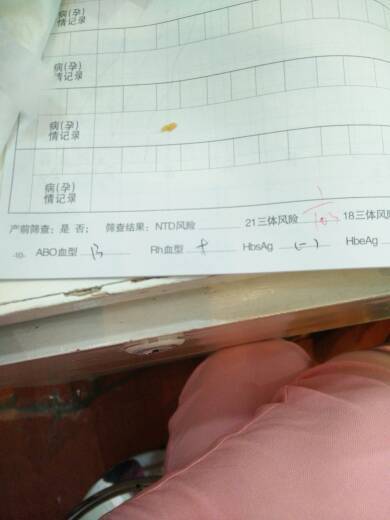 病(孕)
情记录
病(孕)
情记录
病(孕)
情记录
病(孕)
情记录
产前筛查：是 否； 筛查结果：NTD风险 21三体风险 18三体风
-10- ABO血型 B Rh血型 + HbsAg (-) HbeAg